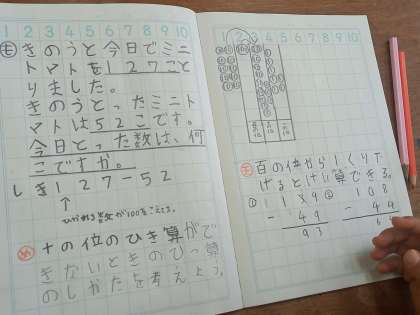 1 2 3 4 5 6 7 8 9 10
も きのうと今日でミニ
トマトを127ことと
りました。
きのうとったミニト
マトは52こです。
今日とった数は、何
こですか。
しき127-52
ひかれる数が100をこえてる。
め 十の位のひき算がで
きないときのひっ算
のしかたを考えよう。
1 2 3 4 5 6 7 8 9 10
百の位から1くり下
げるとけい算できる。
① 1 ② 108
- 49 -
93